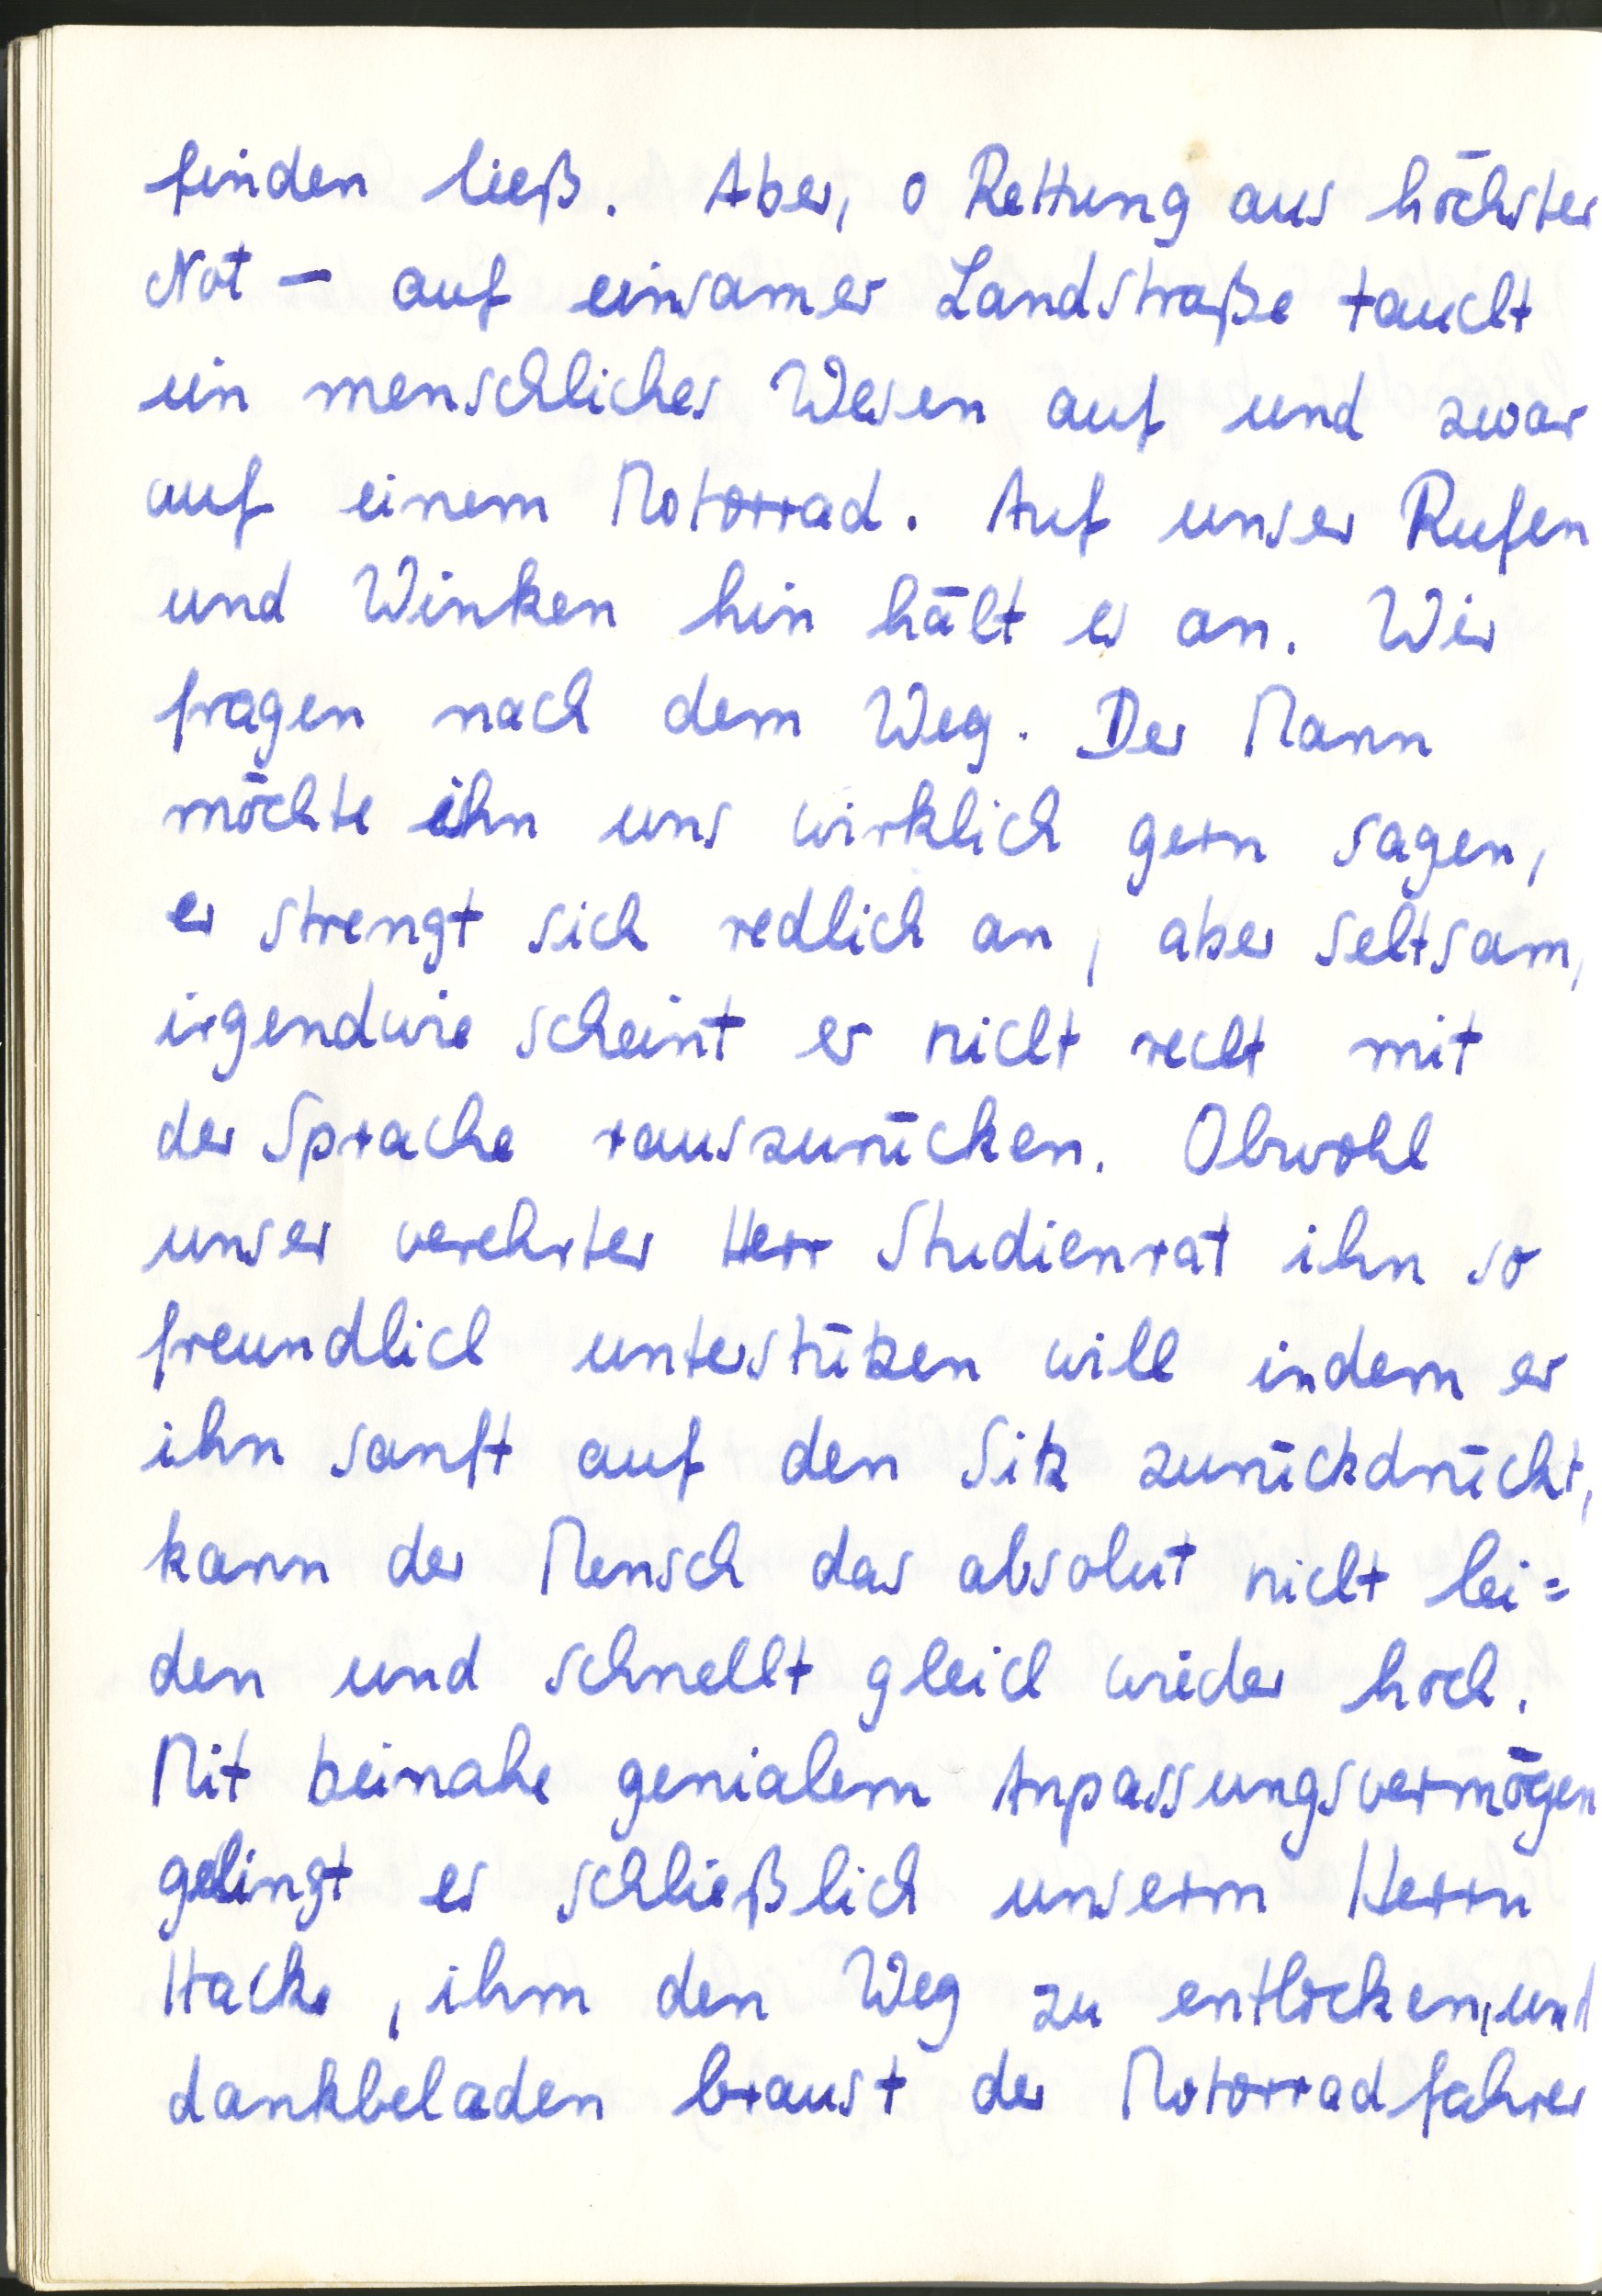 finden ließ. Aber, o Rettung aus höchster
Not – auf einsamer Landstraße taucht
ein menschliches Wesen auf und zwar
auf einem Motorrad. Auf unser Rufen
und Winken hin hält er an. Wir
fragen nach dem Weg. Der Mann
möchte ihn uns wirklich gern sagen,
er strengt sich redlich an, aber seltsam,
irgendwie scheint er nicht recht mit
der Sprache rauszurücken. Obwohl
unser verehrter Herr Studienrat ihn so
freundlich unterstützen will indem er
ihn sanft auf den Sitz zurückdrückt,
kann der Mensch das absolut nicht lei=
den und schnellt gleich wieder hoch.
Mit beinahe genialem Anpassungsvermögen
gelingt es schließlich unserm Herrn
Hacke, ihm den Weg zu entlocken, und
dankbeladen braust der Motorradfahrer